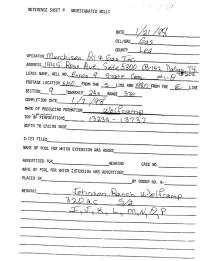 REFERENCE SHEET FOR UNDESIGNATED WELLS
DATE 1/21/88
OIL/GAS Gas
COUNTY Lea
OPERATOR Murchison Oil & Gas Inc.
ADDRESS 1445 Ross Ave, Suite 5300 LB-152 Dallas, TX
LEASE NAME, WELL NO. State Com #1
FOOTAGE LOCATION FROM THE S LINE AND FROM THE E LINE
SECTION 9 TOWNSHIP 24s RANGE 33e
COMPLETION DATE 1/7/88
NAME OF PRODUCING FORMATION Wolfcamp
TOP OF PERFORATIONS 13234 - 13732
DEPTH TO CASING SHOE
C-123 FILED
NAME OF POOL FOR WHICH EXTENSION WAS ASKED
ADVERTISED FOR HEARING CASE NO.
NAME OF POOL FOR WHICH EXTENSION WAS ADVERTISED
PLACED IN BY ORDER NO. R-
REMARKS Johnson Ranch Wolfcamp
320 ac S/2
I, J, K, L, M, N, O, P